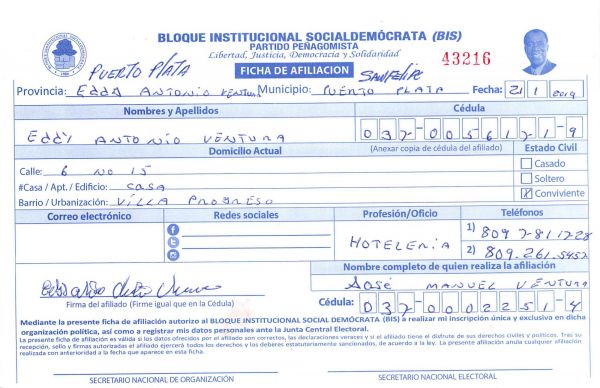 BLOQUE INSTITUCIONAL SOCIALDEMÓCRATA (BIS)
PARTIDO PEÑAGOMISTA
Libertad, Justicia, Democracia y Solidaridad
43216
PUERTO PLATA
FICHA DE AFILIACION
SAN FELIPE
Provincia: EDDY ANTONIO VENTURA Municipio: PUERTO PLATA Fecha: 21 1 2019
Nombres y Apellidos Cédula
EDDY ANTONIO VENTURA 037-0056121-9
Domicilio Actual (Anexar copia de cédula del afiliado) Estado Civil
Calle: 6 NO 15 Casado
#Casa / Apt. / Edificio: CASA Soltero
Barrio / Urbanización: VILLA PROGRESO Conviviente
Correo electrónico Redes sociales Profesión/Oficio Teléfonos
HOTELERIA 1) 809 7-81 12-28
2) 809.261.5452
Nombre completo de quien realiza la afiliación
JOSÉ MANUEL VENTURA
Firma del afiliado (Firme igual que en la Cédula) Cédula: 037-0002251-4
Mediante la presente ficha de afiliación autorizo al BLOQUE INSTITUCIONAL SOCIAL DEMÓCRATA (BIS) a realizar mi inscripción única y exclusiva en dicha
organización política, así como a registrar mis datos personales ante la Junta Central Electoral.
La presente ficha de afiliación es válida si los datos ofrecidos por el afiliado son correctos, las declaraciones veraces y si el afiliado tiene el disfrute de sus derechos civiles y políticos. Tras su
recepción, sello y firmas autorizadas el afiliado ejercerá todos los derechos y los deberes estatutariamente sancionados, de acuerdo a la ley. La presente afiliación anula cualquier afiliación
realizada con anterioridad a la fecha que aparece en esta ficha.
SECRETARIO NACIONAL DE ORGANIZACIÓN SECRETARIO NACIONAL ELECTORAL